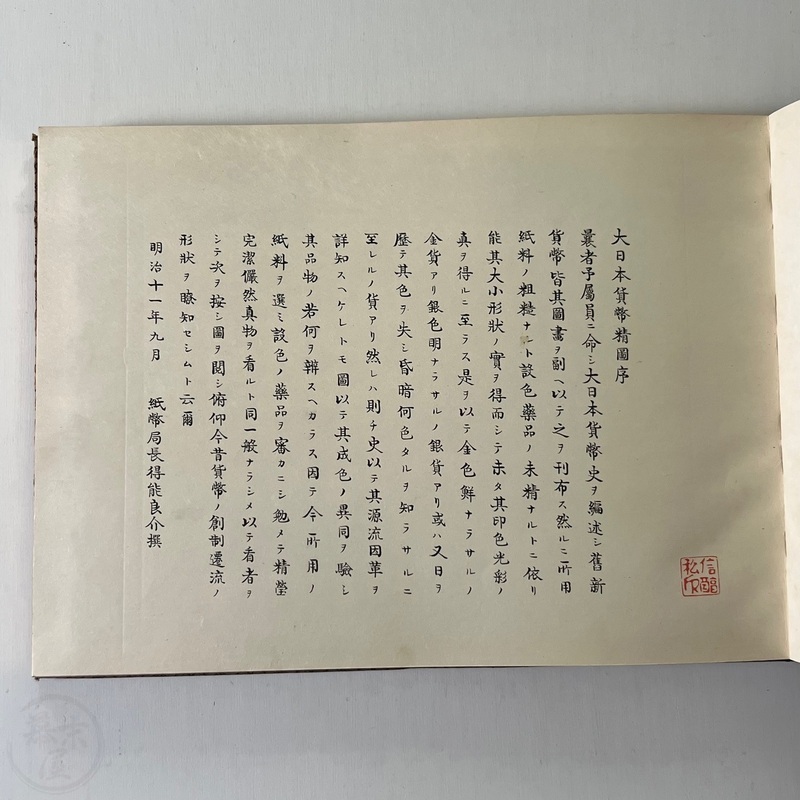 大日本貨幣精圖序
曩者予屬員ニ命シ大日本貨幣史ヲ編述シ舊新
貨幣皆其圖畫ヲ副ヘ以テ之ヲ刊布ス然ルニ所用
紙料ノ粗糙ナルト設色藥品ノ未精ナルトニ依リ
能其大小形狀ノ實ヲ得而シテ未タ其印色光彩ノ
真ヲ得ルニ至ラス是ヲ以テ金色鮮ナラサルノ
金貨アリ銀色明ナラサルノ銀貨アリ或ハ又日ヲ
歴テ其色ヲ失シ昏暗何色タルヲ知ラサルニ
至レルノ貨アリ然レハ則チ史以テ其源流因革ヲ
詳知スヘケレトモ圖以テ其成色ノ異同ヲ驗シ
其品物ノ若何ヲ辨スヘカラス因テ今所用ノ
紙料ヲ選ミ設色ノ藥品ヲ審カニシ勉メテ精瑩
完潔儼然真物ヲ看ルト同一般ナラシメ以テ看者ヲ
シテ次ヲ按シ圖ヲ閲シ俯仰今昔貨幣ノ創制遷流ノ
形狀ヲ瞭知セシムト云爾
明治十一年九月 紙幣局長得能良介撰